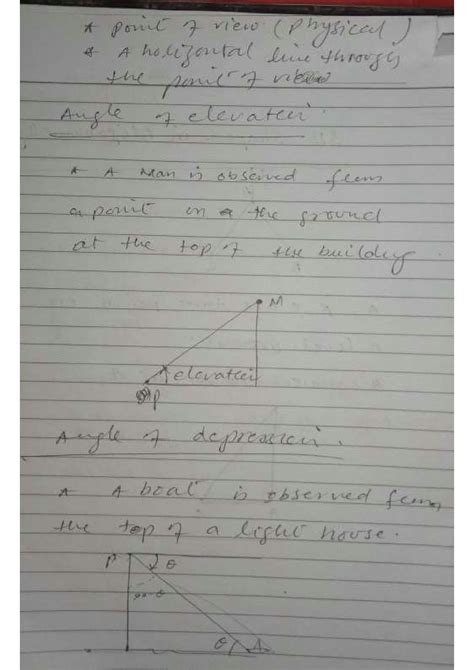 * point of view (physical)
* A horizontal line through
the point of view
Angle of elevation.
* A man is observed from
a point on the ground
at the top of the building.
M
elevation
P
Angle of depression.
* A boat is observed from
the top of a light house.
P θ
90-θ
θ A